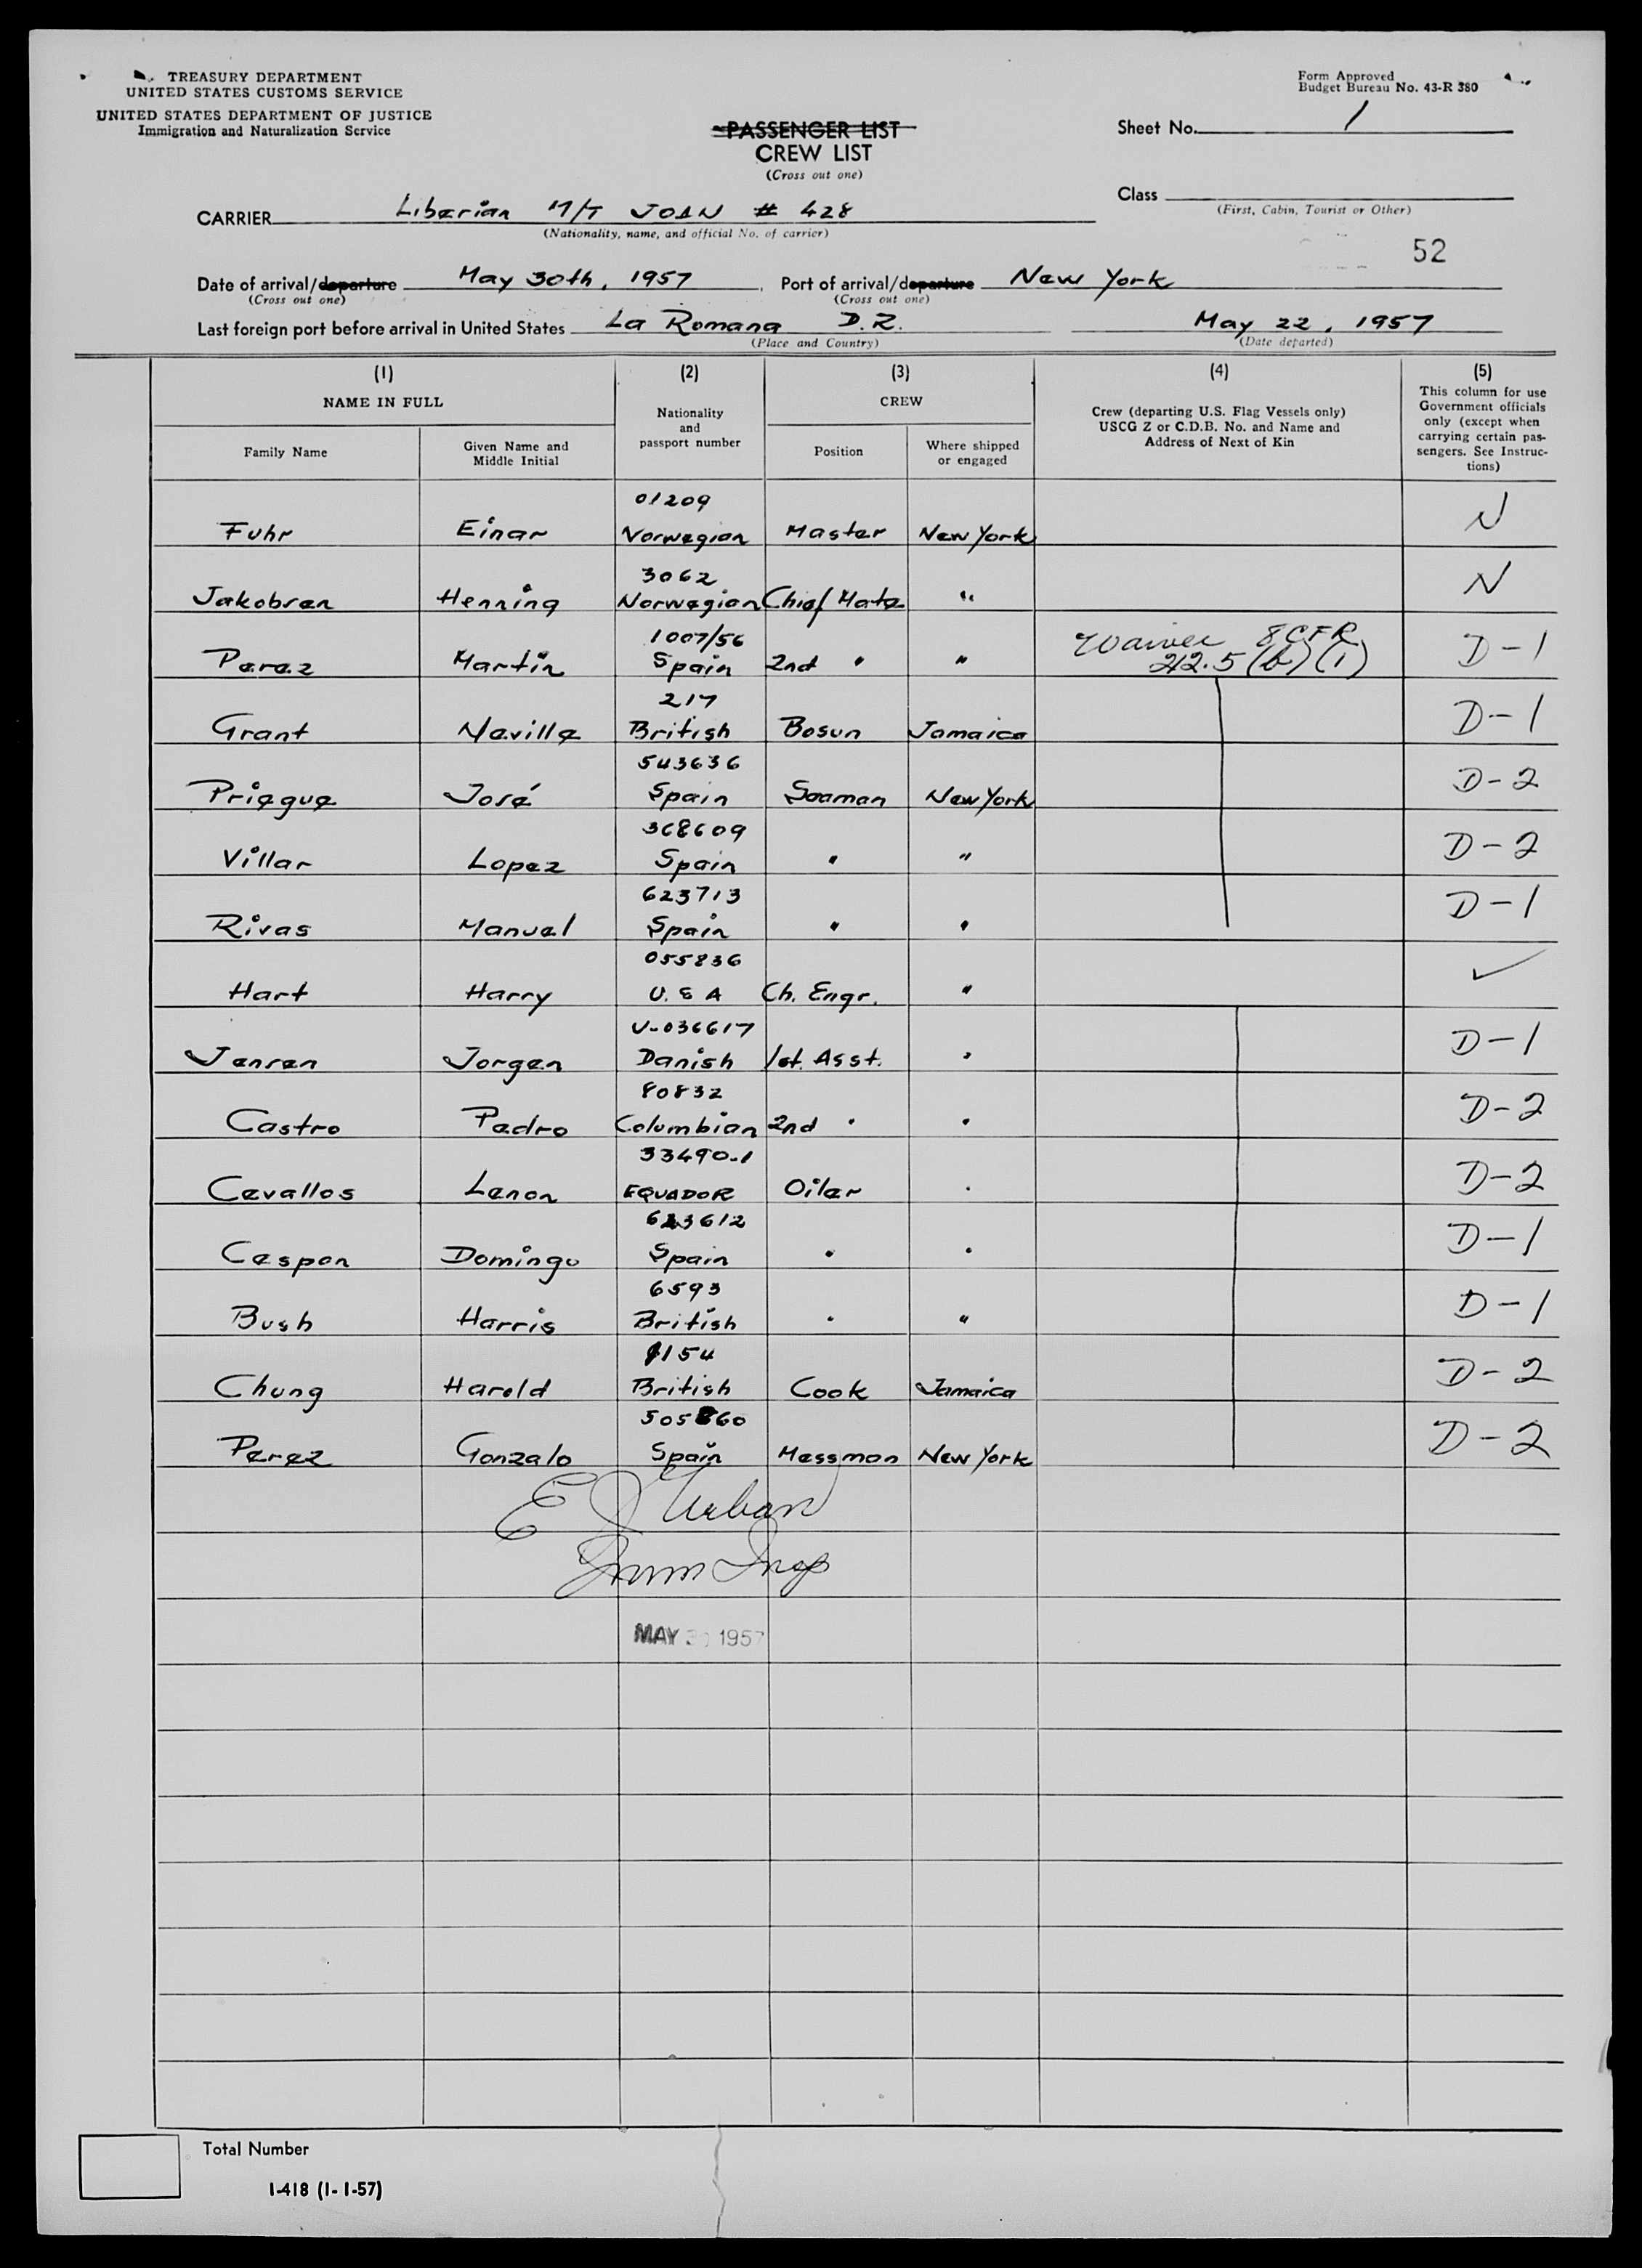 TREASURY DEPARTMENT
UNITED STATES CUSTOMS SERVICE
UNITED STATES DEPARTMENT OF JUSTICE
Immigration and Naturalization Service
Form Approved
Budget Bureau No. 43-R 380
PASSENGER LIST
CREW LIST
(Cross out one)
Sheet No. 1
Class
(First, Cabin, Tourist or Other)
CARRIER Liberian M/T JOAN # 428
(Nationality, name, and official No. of carrier)
52
Date of arrival/departure May 30th, 1957 Port of arrival/departure New York
(Cross out one) (Cross out one)
Last foreign port before arrival in United States La Romana D.R. May 22, 1957
(Place and Country) (Date departed)
(1) (2) (3) (4) (5)
NAME IN FULL
Family Name
Given Name and
Middle Initial
Nationality
and
passport number
CREW
Position
Where shipped
or engaged
Crew (departing U.S. Flag Vessels only)
USCG Z or C.D.B. No. and Name and
Address of Next of Kin
This column for use
Government officials
only (except when
carrying certain pas-
sengers. See Instruc-
tions)
01209
Fuhr Einar Norwegian Master New York N
3062
Jakobsen Henning Norwegian Chief Mate " N
1007/56 Waiver 8 CFR
Perez Martin Spain 2nd " " 212.5 (b) (1) D-1
217
Grant Neville British Bosun Jamaica D-1
543636
Priegue José Spain Seaman New York D-2
368609
Villar Lopez Spain " " D-2
623713
Rivas Manuel Spain " " D-1
055836
Hart Harry U.S.A Ch. Engr. " ✓
U-036617
Jensen Jorgen Danish 1st. Asst. " D-1
80832
Castro Pedro Columbian 2nd " " D-2
33490-1
Cevallos Lenon EQUADOR Oiler " D-2
623612
Cespon Domingo Spain " " D-1
6593
Bush Harris British " " D-1
1154
Chung Harold British Cook Jamaica D-2
505860
Perez Gonzalo Spain Messman New York D-2
E J Urban
Imm Insp
MAY 30 1957
Total Number
I-418 (1-1-57)